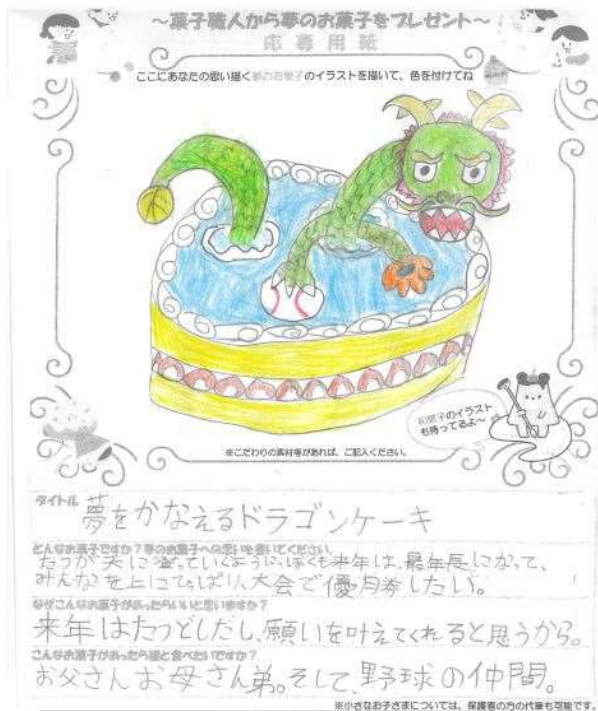 ～菓子職人から夢のお菓子をプレゼント～
応募用紙
ここにあなたの思い描く夢のお菓子のイラストを描いて、色を付けてね
和菓子のイラスト
も待ってるよ～
※こだわりの素材等があれば、ご記入ください。
タイトル
夢をかなえるドラゴンケーキ
どんなお菓子ですか？夢のお菓子への思いを書いてください。
たつが天に登っていくように、ぼくも来年は、最年長になって、
みんなを上にひっぱり、大会で優勝したい。
なぜこんなお菓子があったらいいと思いますか？
来年はたつどしだし、願いを叶えてくれると思うから。
こんなお菓子があったら誰と食べたいですか？
お父さんお母さん弟。そして、野球の仲間。
※小さなお子さまについては、保護者の方の代筆も可能です。